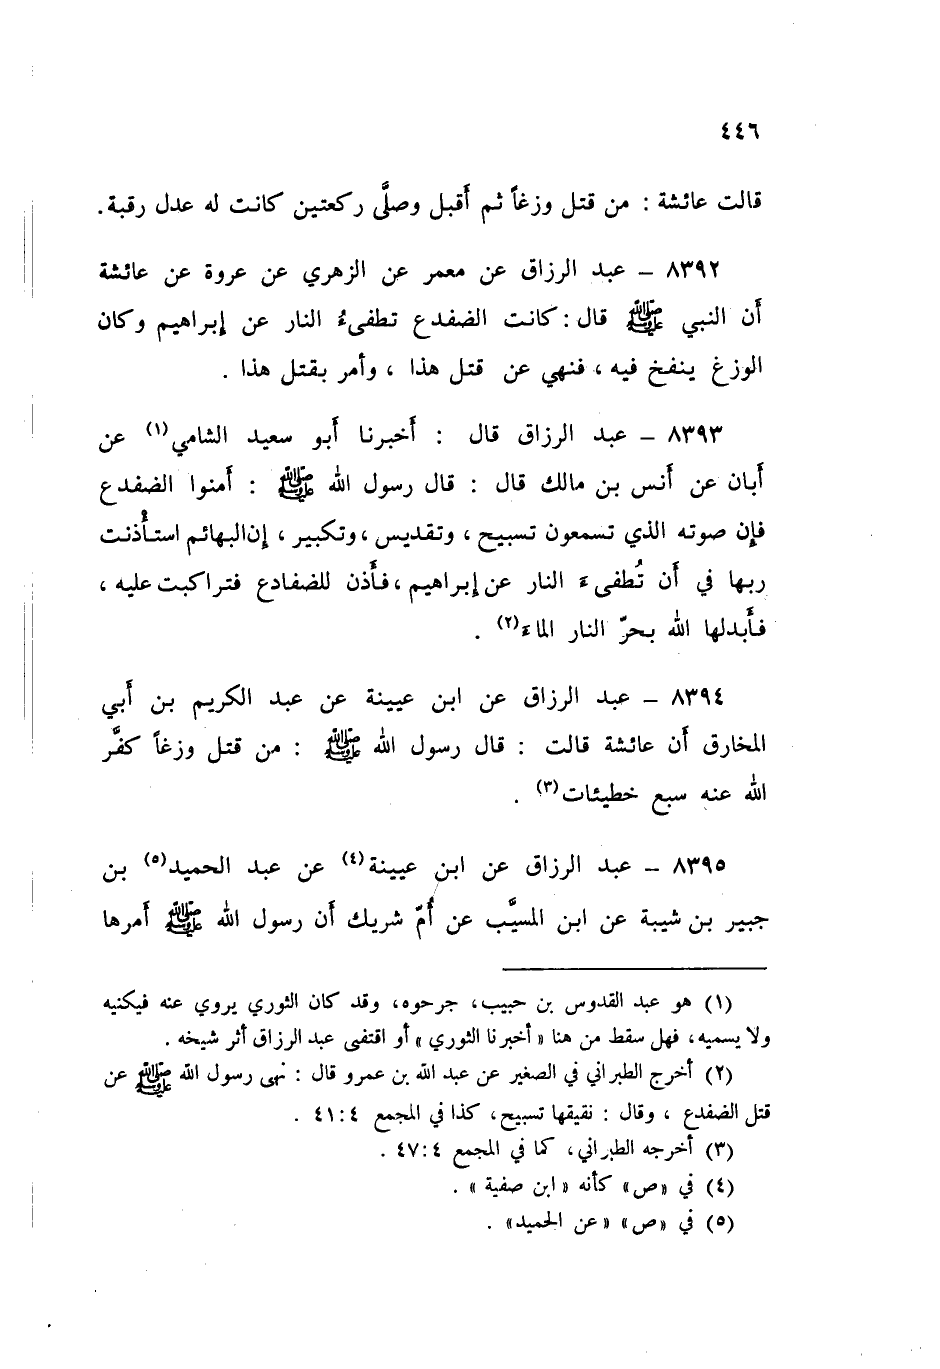 ٤٤٦
قالت عائشة : من قتل وزغاً ثم أقبل وصلَّى ركعتين كانت له عدل رقبة.
٨٣٩٢ – عبد الرزاق عن معمر عن الزهري عن عروة عن عائشة
أن النبي ﷺ قال : كانت الضفدع تطفىءُ النار عن إبراهيم وكان
الوزغ ينفخ فيه ، فنهي عن قتل هذا ، وأمر بقتل هذا .
٨٣٩٣ – عبد الرزاق قال : أخبرنا أبو سعيد الشامي(١) عن
أبان عن أنس بن مالك قال : قال رسول الله ﷺ : أمنوا الضفدع
فإن صوته الذي تسمعون تسبيح ، وتقديس ، وتكبير ، إن البهائم استأذنت
ربها في أن تُطفىءَ النار عن إبراهيم ، فأذن للضفادع فتراكبت عليه ،
فأبدلها الله بحرّ النار الماءَ(٢) .
٨٣٩٤ – عبد الرزاق عن ابن عيينة عن عبد الكريم بن أبي
المخارق أن عائشة قالت : قال رسول الله ﷺ : من قتل وزغاً كفَّر
الله عنه سبع خطيئات(٣) .
٨٣٩٥ – عبد الرزاق عن ابن عيينة(٤) عن عبد الحميد(٥) بن
جبير بن شيبة عن ابن المسيَّب عن أُمّ شريك أن رسول الله ﷺ أمرها
(١) هو عبد القدوس بن حبيب، جرحوه، وقد كان الثوري يروي عنه فيكنيه
ولا يسميه، فهل سقط من هنا « أخبرنا الثوري » أو اقتفى عبد الرزاق أثر شيخه .
(٢) أخرج الطبراني في الصغير عن عبد الله بن عمرو قال : نهى رسول الله ﷺ عن
قتل الضفدع ، وقال : نقيقها تسبيح، كذا في المجمع ٤ : ٤١ .
(٣) أخرجه الطبراني، كما في المجمع ٤ : ٤٧ .
(٤) في «ص» كأنه « ابن صفية » .
(٥) في «ص» « عن الحميد» .